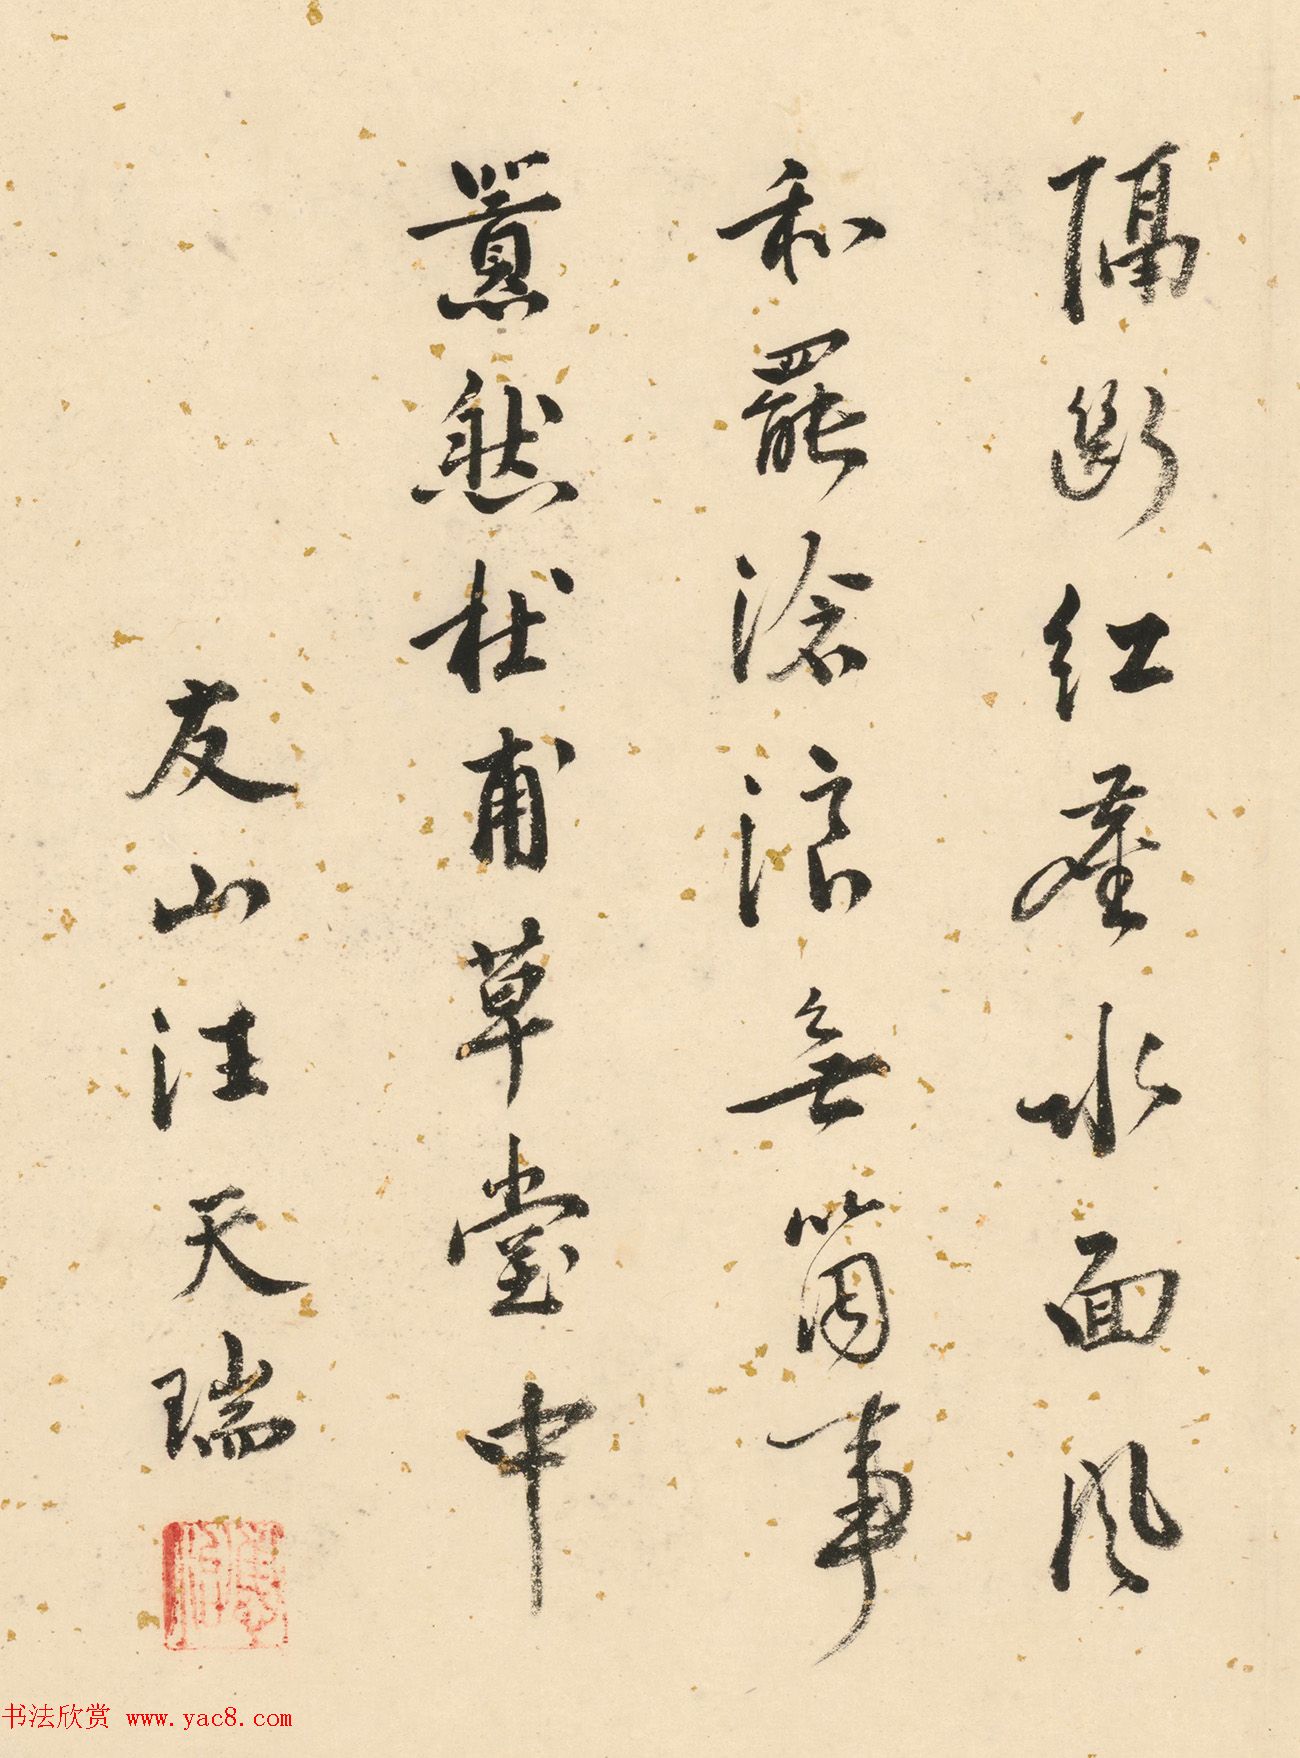 隔斷紅塵水面風
和罷滄浪無箇事
囂然杜甫草堂中
友山汪天瑞
书法欣赏 www.yac8.com